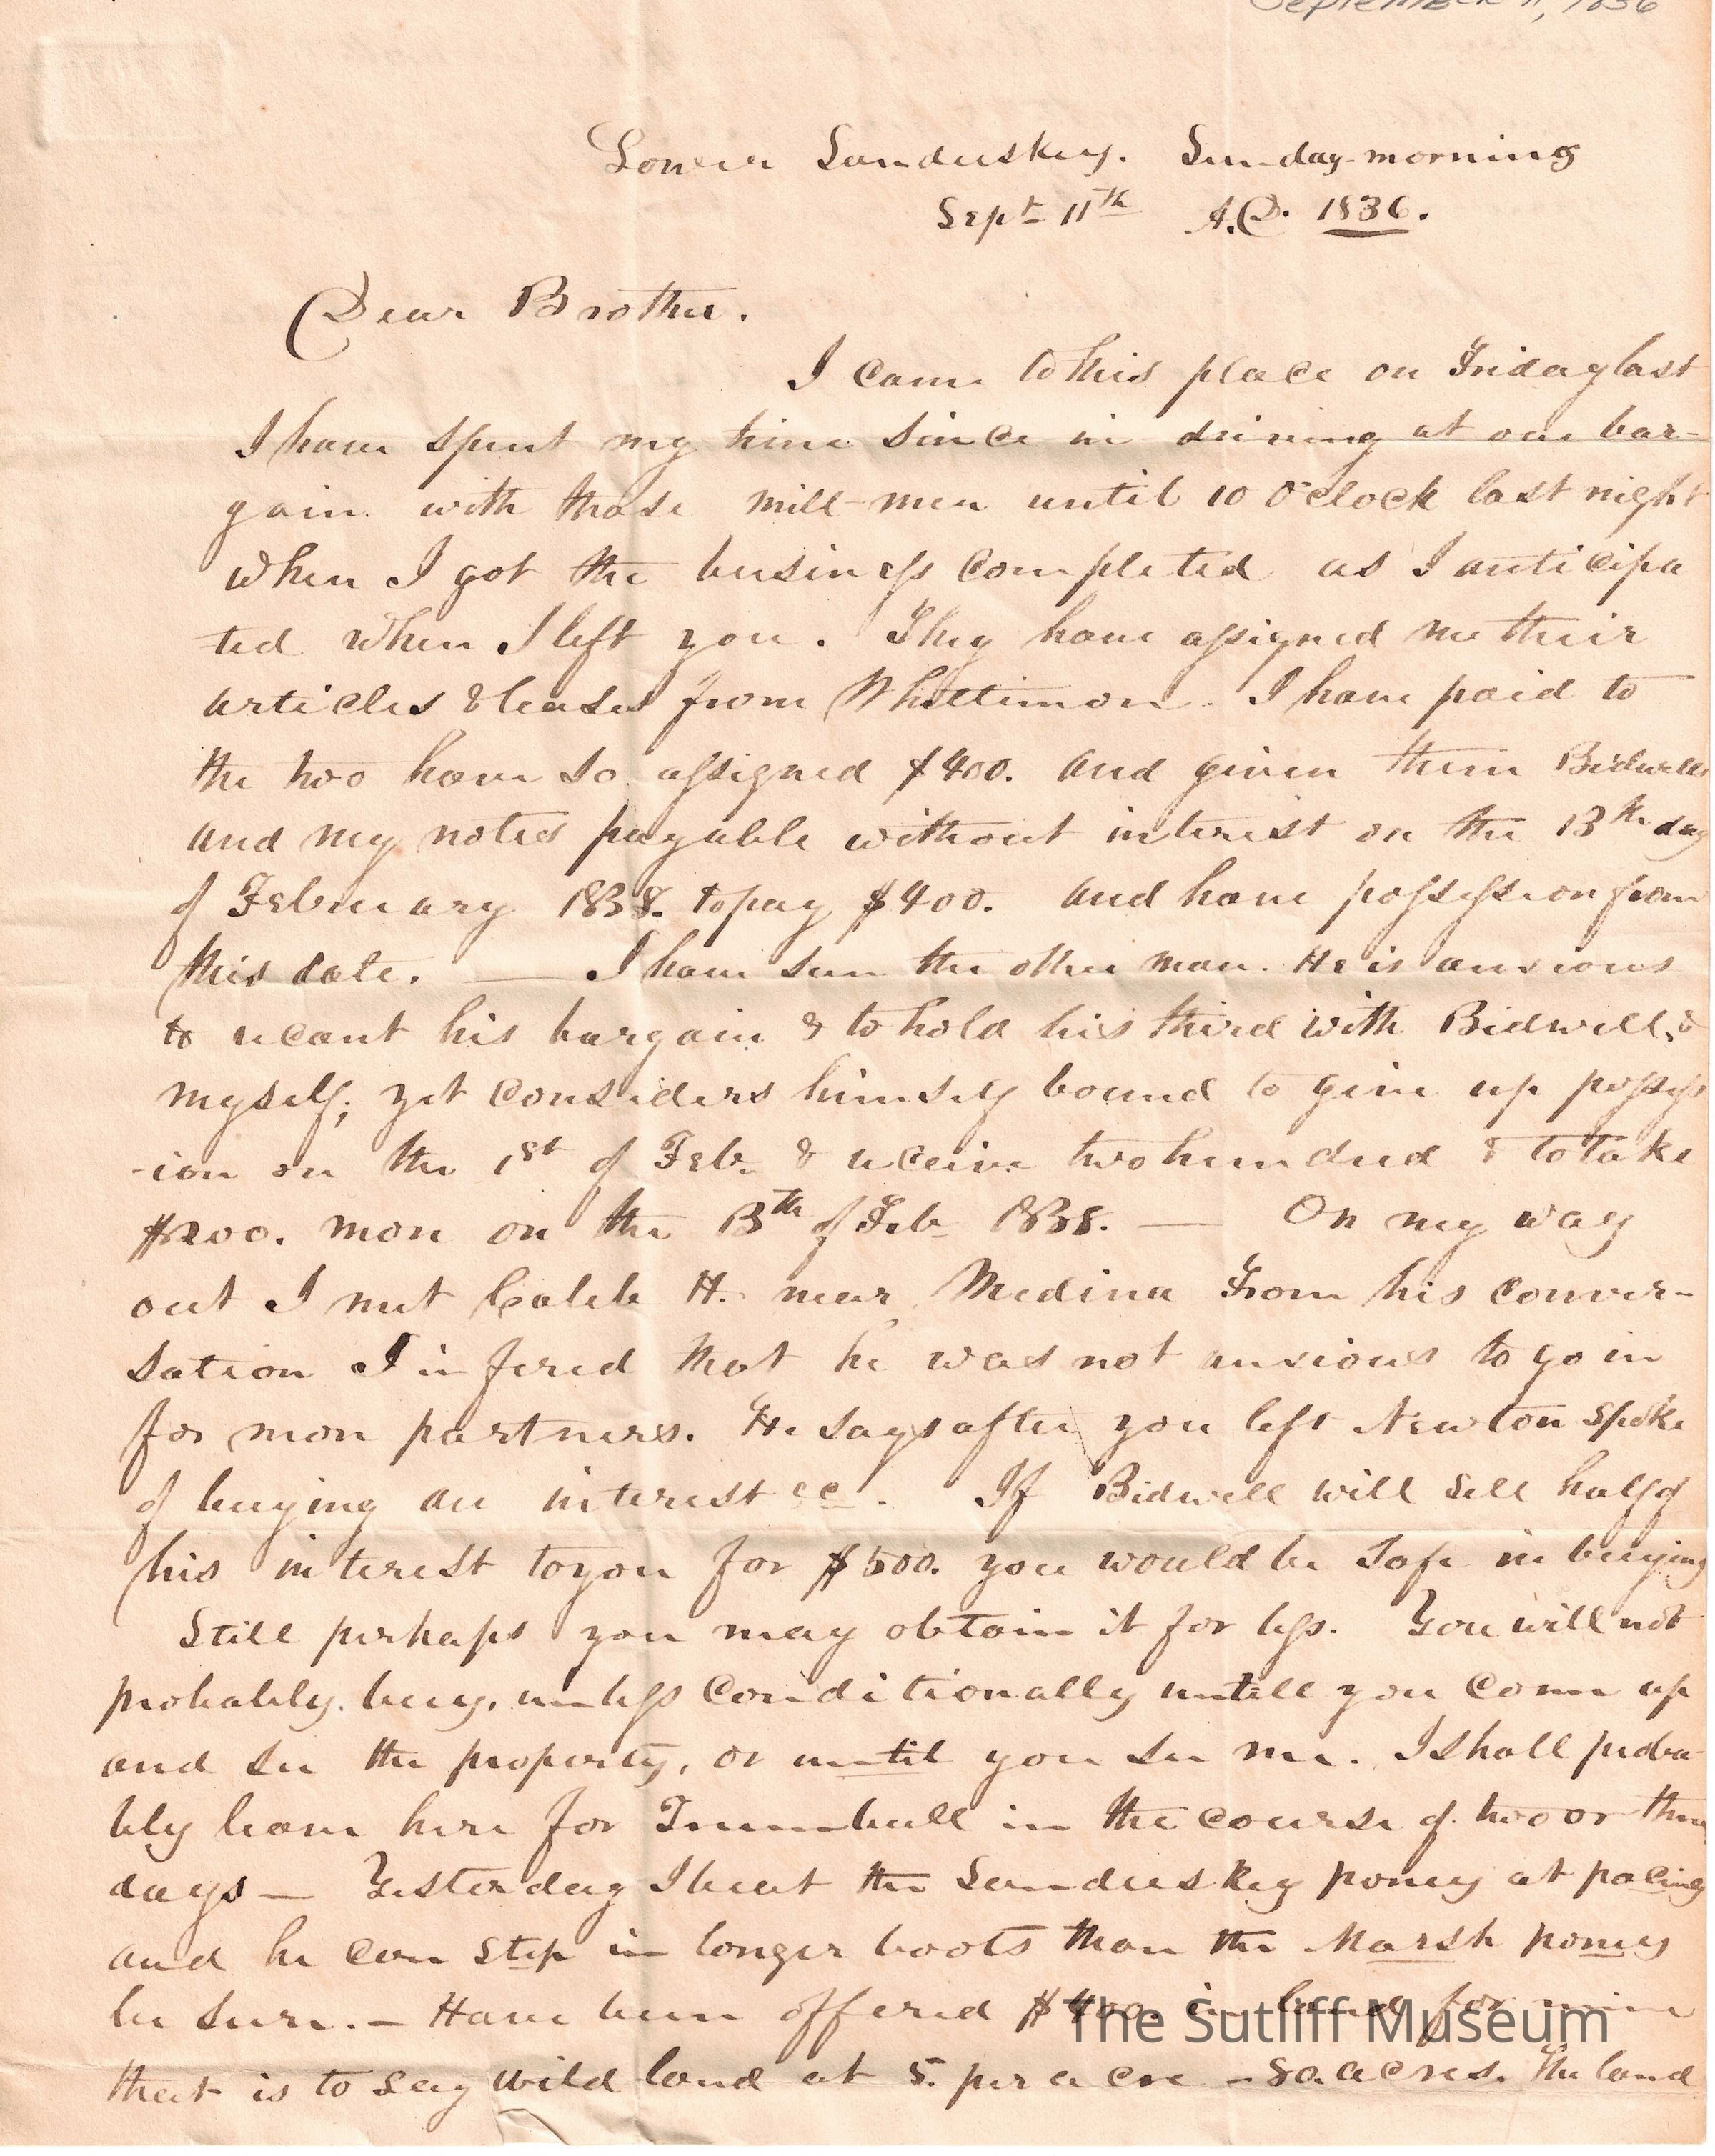 September 11, 1836
Lower Sanduskey. Sunday-morning
Sept 11th A.D. 1836.
Dear Brother.
I came to this place on Friday last
I have spent my time since in driving at our bar-
gain with those mill-men until 10 O'clock last night
when I got the business completed as I anticipa
ted when I left you. They have assigned me their
articles & leases from Whittimore. I have paid to
the two have so assigned $400. and given them Bidwells
and my notes payable without interest on the 13th day
of February 1838. to pay $400. and have possession from
this date. — I have seen the other man. He is anxious
to recant his bargain & to hold his third with Bidwell &
myself; yet considers himself bound to give up possess
-ion on the 1st of Feb. & receive two hundred & to take
$200. more on the 13th of Feb 1838. — On my way
out I met Caleb H. near Medina From his conver-
sation I infered that he was not anxious to go in
for more partners. He says after you left Newton spoke
of buying an interest &c. If Bidwell will sell half of
his interest to you for $500. you would be safe in buying
Still perhaps you may obtain it for less. You will not
probably. buy, unless conditionally untill you come up
and see the property, or until you see me. I shall proba-
bly leave here for Trumbull in the course of two or three
days — Yesterday I beat the Sanduskey poney at pacing
and he can step in longer boots than the Marsh poney
be sure. — Have been offered $400. in land for mine
that is to say wild land at 5. per acre — 80 acres. The land
The Sutliff Museum